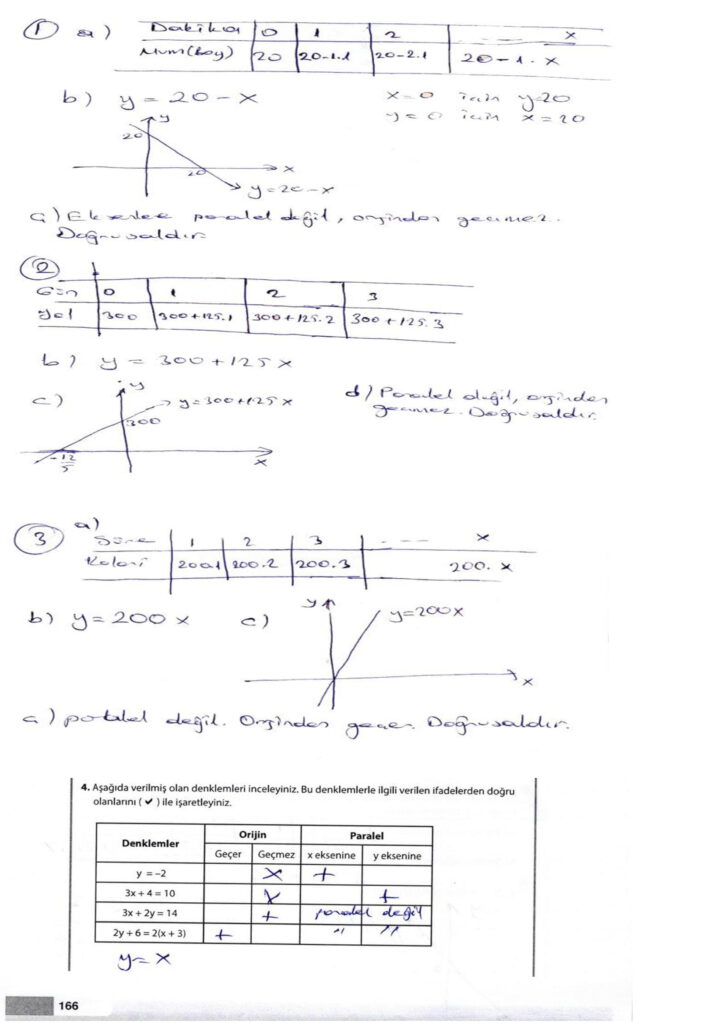 1 a) Dakika 0 1 2 ... x
Mum(boy) 20 20-1.1 20-2.1 20-1.x
b) y = 20-x
x=0 için y=20
y=0 için x=20
y
20
20
x
y=20-x
ç) Eksenlere paralel değil, orjinden geçmez.
Doğrusaldır.
2
Gün 0 1 2 3
Yol 300 300+125.1 300+125.2 300+125.3
b) y = 300+125x
c)
y
y=300+125x
300
-12/5
x
d) Paralel değil, orjinden
geçmez. Doğrusaldır.
3 a)
Süre 1 2 3 ... x
Kalori 200.1 200.2 200.3 200.x
b) y=200x
c)
y
y=200x
x
ç) paralel değil. Orjinden geçer. Doğrusaldır.
4. Aşağıda verilmiş olan denklemleri inceleyiniz. Bu denklemlerle ilgili verilen ifadelerden doğru
olanlarını ( ✔ ) ile işaretleyiniz.
Denklemler Orijin Paralel
Geçer Geçmez x eksenine y eksenine
y = –2 x +
3x + 4 = 10 x +
3x + 2y = 14 + paralel değil
2y + 6 = 2(x + 3) + " "
y=x
166